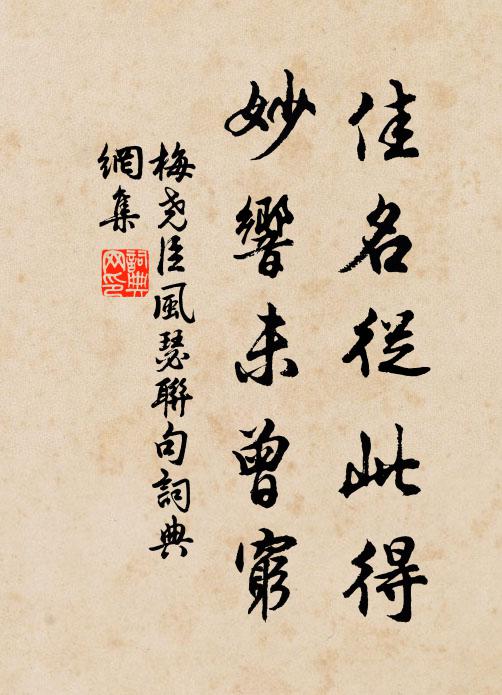 佳名從此得
妙響未曾窮
梅堯臣風瑟聯句詞典
網集
詞典
网印